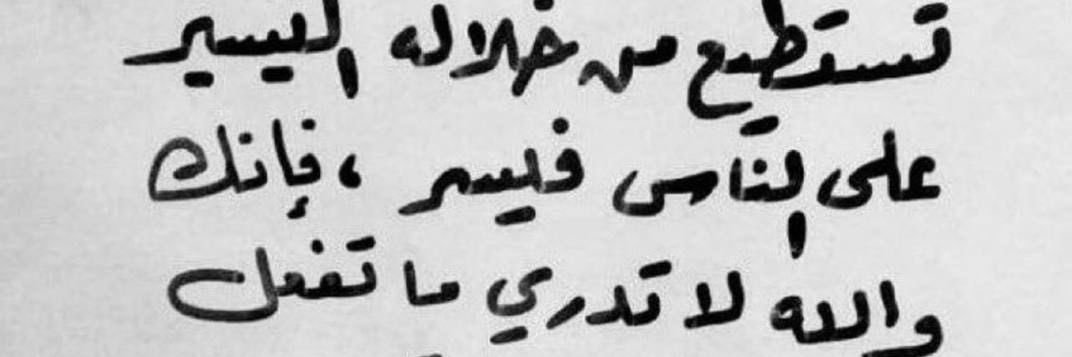 تستطيع من خلاله اليسير
على الناس فيسر ، فإنك
والله لا تدري ما تفعل